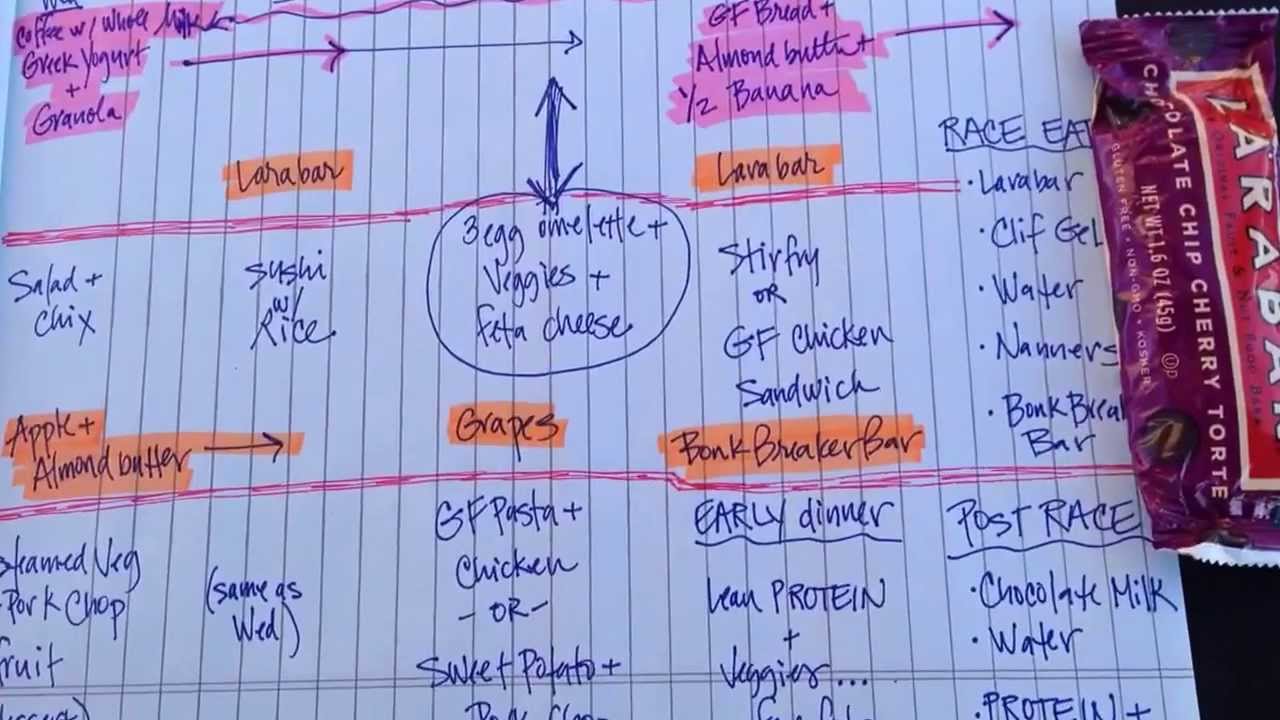 Wed
Coffee w/ Whole Milk
Greek Yogurt
+
Granola
GF Bread +
Almond butter +
1/2 Banana
Larabar
Larabar
Salad +
Chix
Sushi
w/
Rice
3 egg omelette +
Veggies +
Feta cheese
Stirfry
OR
GF Chicken
Sandwich
Apple +
Almond butter
Grapes
BonkBreaker Bar
Steamed Veg
Pork Chop
Fruit
(same as
Wed)
GF Pasta +
Chicken
- OR -
Sweet Potato +
Pork Chop
EARLY dinner
Lean PROTEIN
+
Veggies ...
RACE EAT
· Larabar
· Clif Gel
· Water
· Nanners
· Bonk Break
Bar
POST RACE
· Chocolate Milk
· Water
· PROTEIN +
LARABAR
ORIGINAL FRUIT & NUT FOOD BAR
CHOCOLATE CHIP CHERRY TORTE
NET WT 1.6 OZ (45g)
GLUTEN FREE • NON-GMO • KOSHER